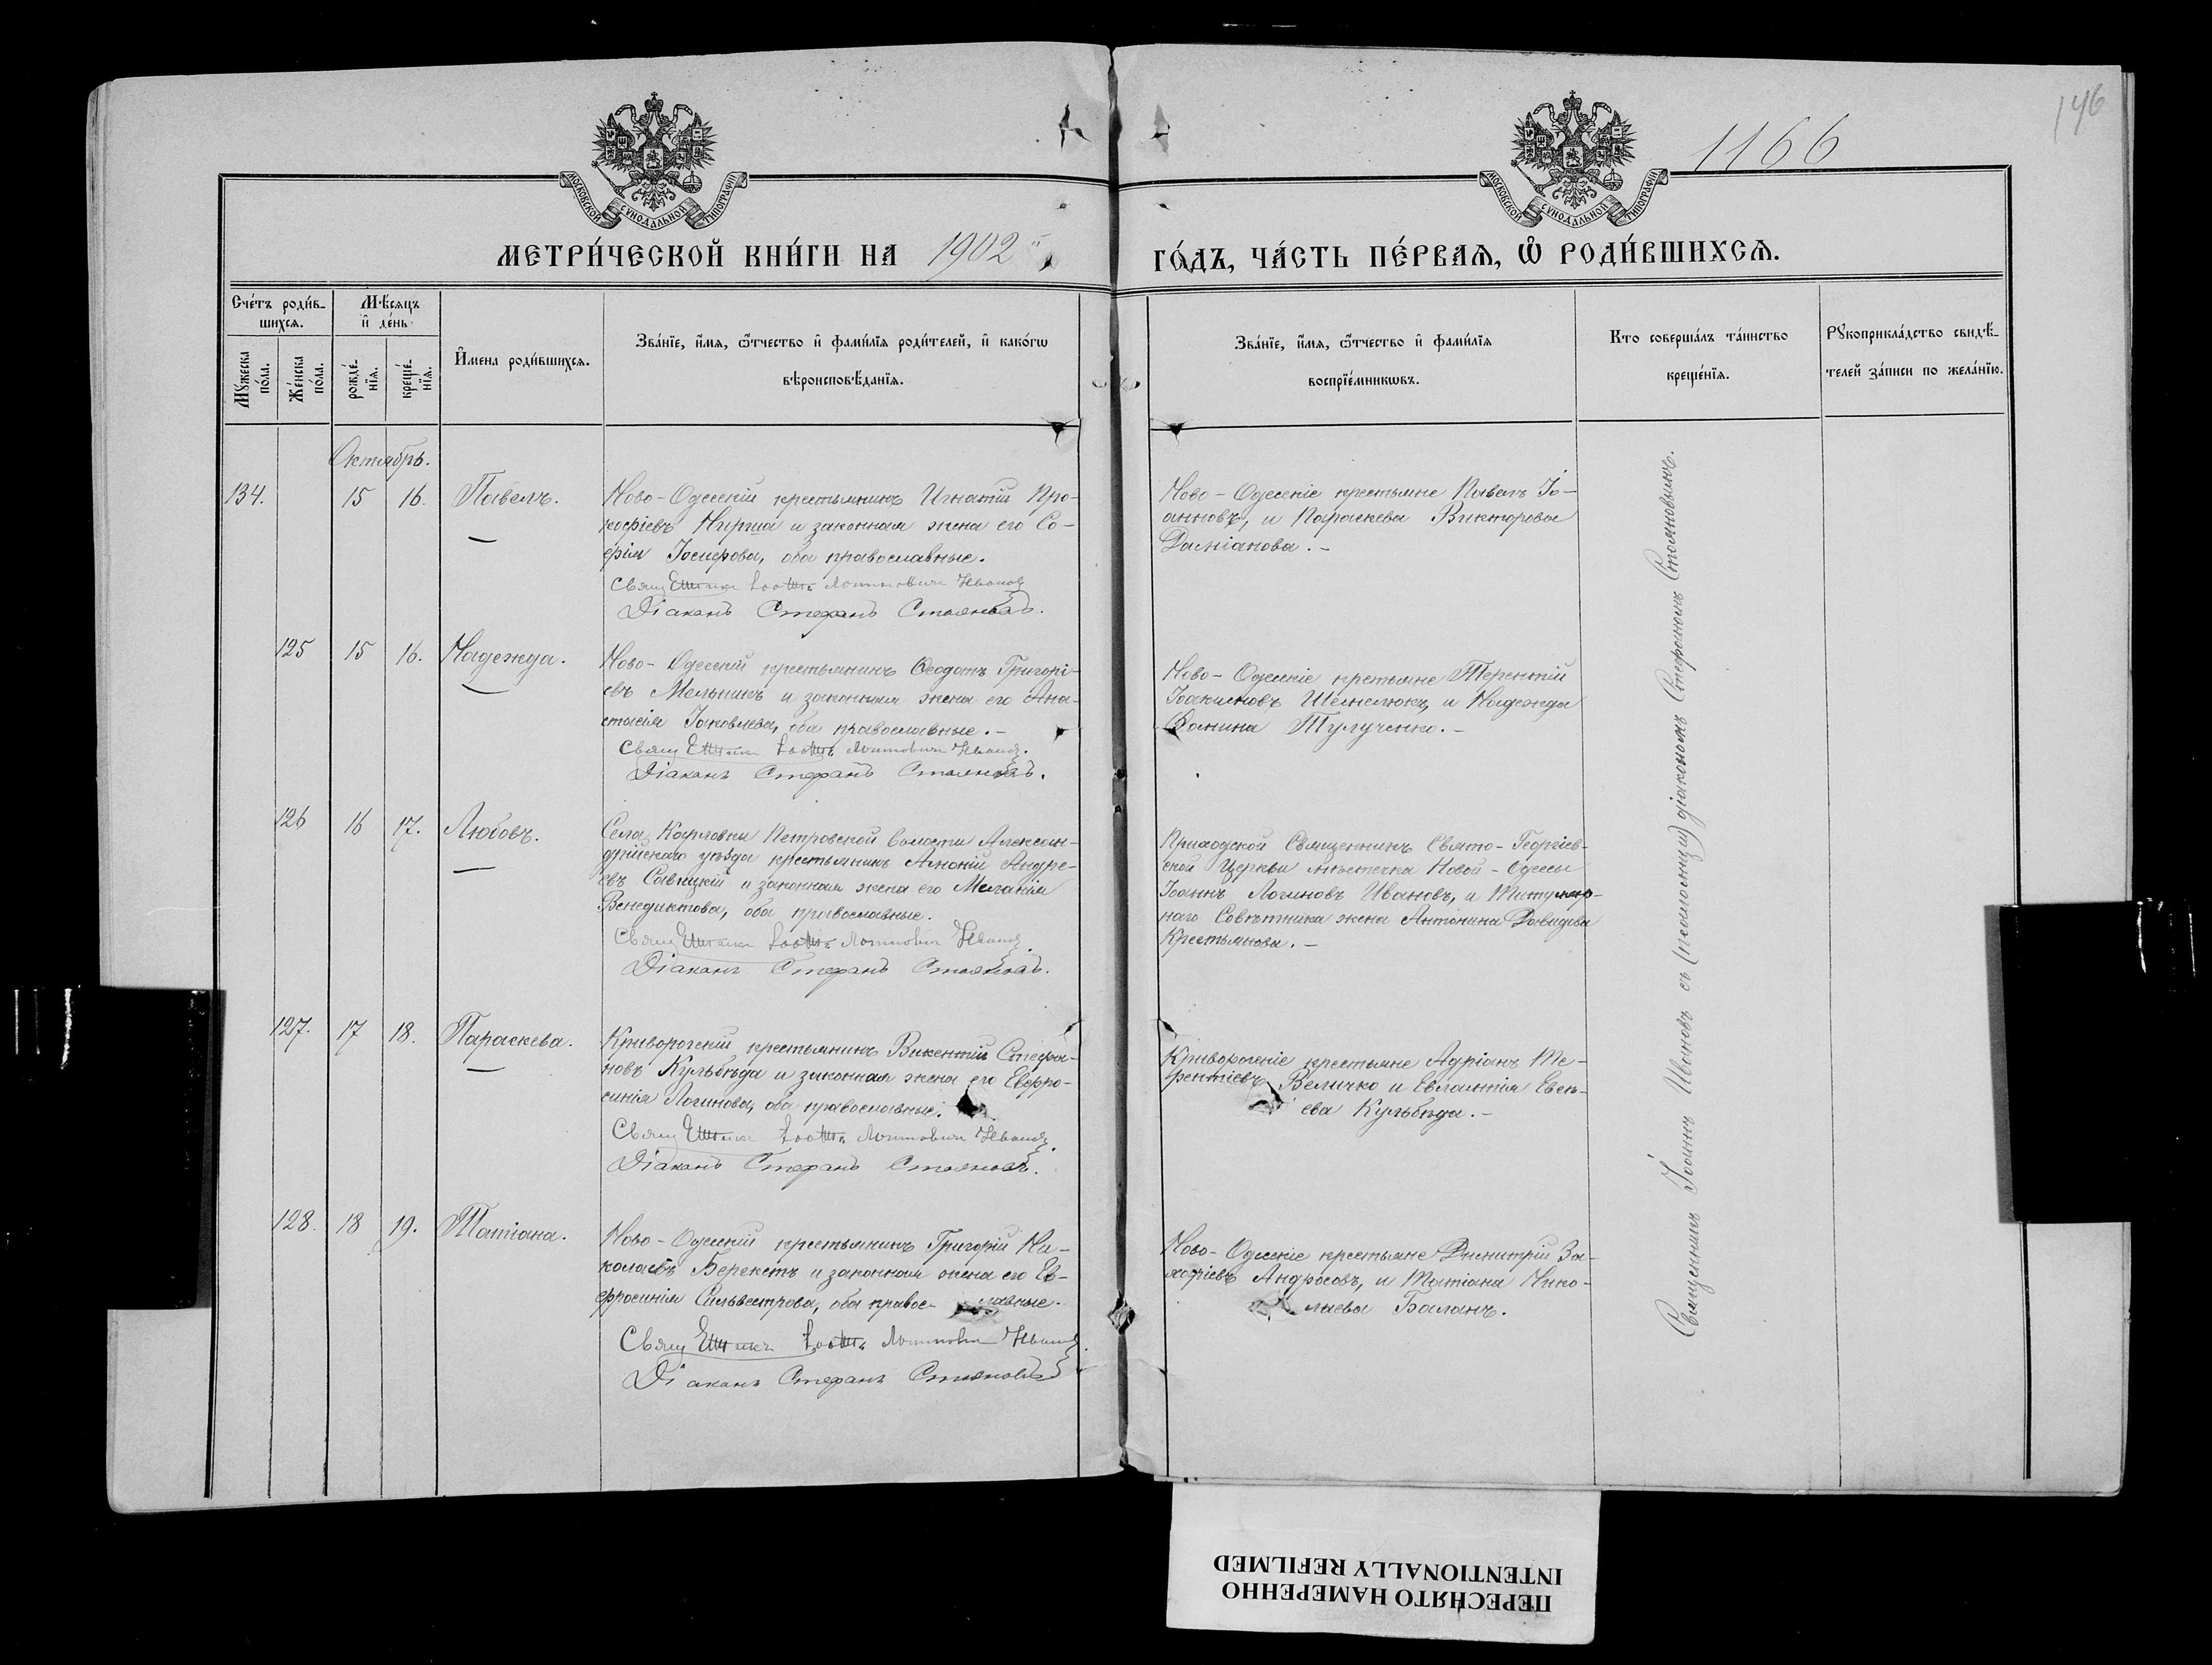 146
1166
МОСКОВСКОЙ СѴНОДАЛЬНОЙ ТИПОГРАФІИ
МОСКОВСКОЙ СѴНОДАЛЬНОЙ ТИПОГРАФІИ
МЕТРИ́ЧЕСКОЙ КНИ́ГИ НА 1902
ГО́ДЪ, ЧА́СТЬ ПЕ́РВАЯ, Ѡ РОДИ́ВШИХСЯ.
Сче́тъ роди́в-
шихся.
Мѣ́сяцъ
и҆ де́нь
Мꙋ́жеска
по́ла.
Же́нска
по́ла.
рожде́-
нїя.
креще́-
нїя.
И҆мена роди́вшихся.
Зва́нїе, и҆́мя, ѻ҆́тчество и҆ фами́лїя роди́телей, и҆ како́гѡ
вѣроисповѣ́данїя.
Зва́нїе, и҆́мя, ѻ҆́тчество и҆ фами́лїя
воспрїе́мникѡвъ.
Кто соверша́лъ та́инство
креще́нїя.
Рꙋкоприкла́дство свидѣ́-
телей за́писи по жела́нїю.
Октябрь.
134.
15
16.
Павелъ.
Ново-Одесскій крестьянинъ Игнатій Про-
кофіевъ Чирша и законная жена его Со-
фія Іосифова, оба православные.
Свящ Іоаннъ Логиновичъ Ивановъ
Діаконъ Стефанъ Стояновъ.
Ново-Одесскіе крестьяне Павелъ Іо-
анновъ, и Параскева Викторова
Даміанова.-
125
15
16.
Надежда.
Ново-Одесскій крестьянинъ Ѳеодотъ Григорі-
евъ Мельникъ и законная жена его Ана-
стасія Іаковлева, оба православные.-
Свящ Іоаннъ Логиновичъ Ивановъ.
Діаконъ Стефанъ Стояновъ.
Ново-Одесскіе крестьяне Терентій
Іоакимовъ и Надежда
Ѳомина Тулученко.-
126
16
17.
Любовь.
Села Карловки Петровской волости Алексан-
дрійскаго уѣзда крестьянинъ Андре-
евъ Савицкій и законная жена его Меланія
Венедиктова, оба православные.
Свящ Іоаннъ Логиновичъ Ивановъ.
Діаконъ Стефанъ Стояновъ.
Приходской Священникъ Свято-Георгіев-
ской Церкви мѣстечка Новой-Одессы
Іоаннъ Логиновъ Ивановъ, и Титуляр-
наго Совѣтника жена Антонина Давидова
Крестьянова.-
127.
17
18.
Параскева.
Криворогскій крестьянинъ Викентій Стефа-
новъ Кульбѣда и законная жена его Евфро-
синія Логинова, оба православные.
Свящ Іоаннъ Логиновичъ Ивановъ.
Діаконъ Стефанъ Стояновъ.
Криворогскіе крестьяне Адріанъ Те-
рентіевъ Величко и Евлампія Евсе-
ева Кульбѣда.-
128.
18
19.
Татіана.
Ново-Одесскій крестьянинъ Григорій Ни-
колаевъ Берекетъ и законная жена его Ев-
фросинія Сильвестрова, оба правос-лавные.
Свящ Іоаннъ Логиновичъ Ивановъ.
Діаконъ Стефанъ Стояновъ
Ново-Одесскіе крестьяне Димитрій За-
харіевъ Андросовъ, и Татіана Нико-
лаева Баланъ.
Священникъ Іоаннъ Ивановъ съ (псаломщи) діакономъ Стефаномъ Стояновымъ.
ПЕРЕСНЯТО НАМЕРЕННО
INTENTIONALLY REFILMED